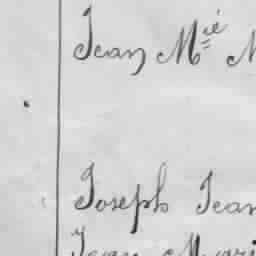 Jean Mié
Joseph Jean
Jean Mari